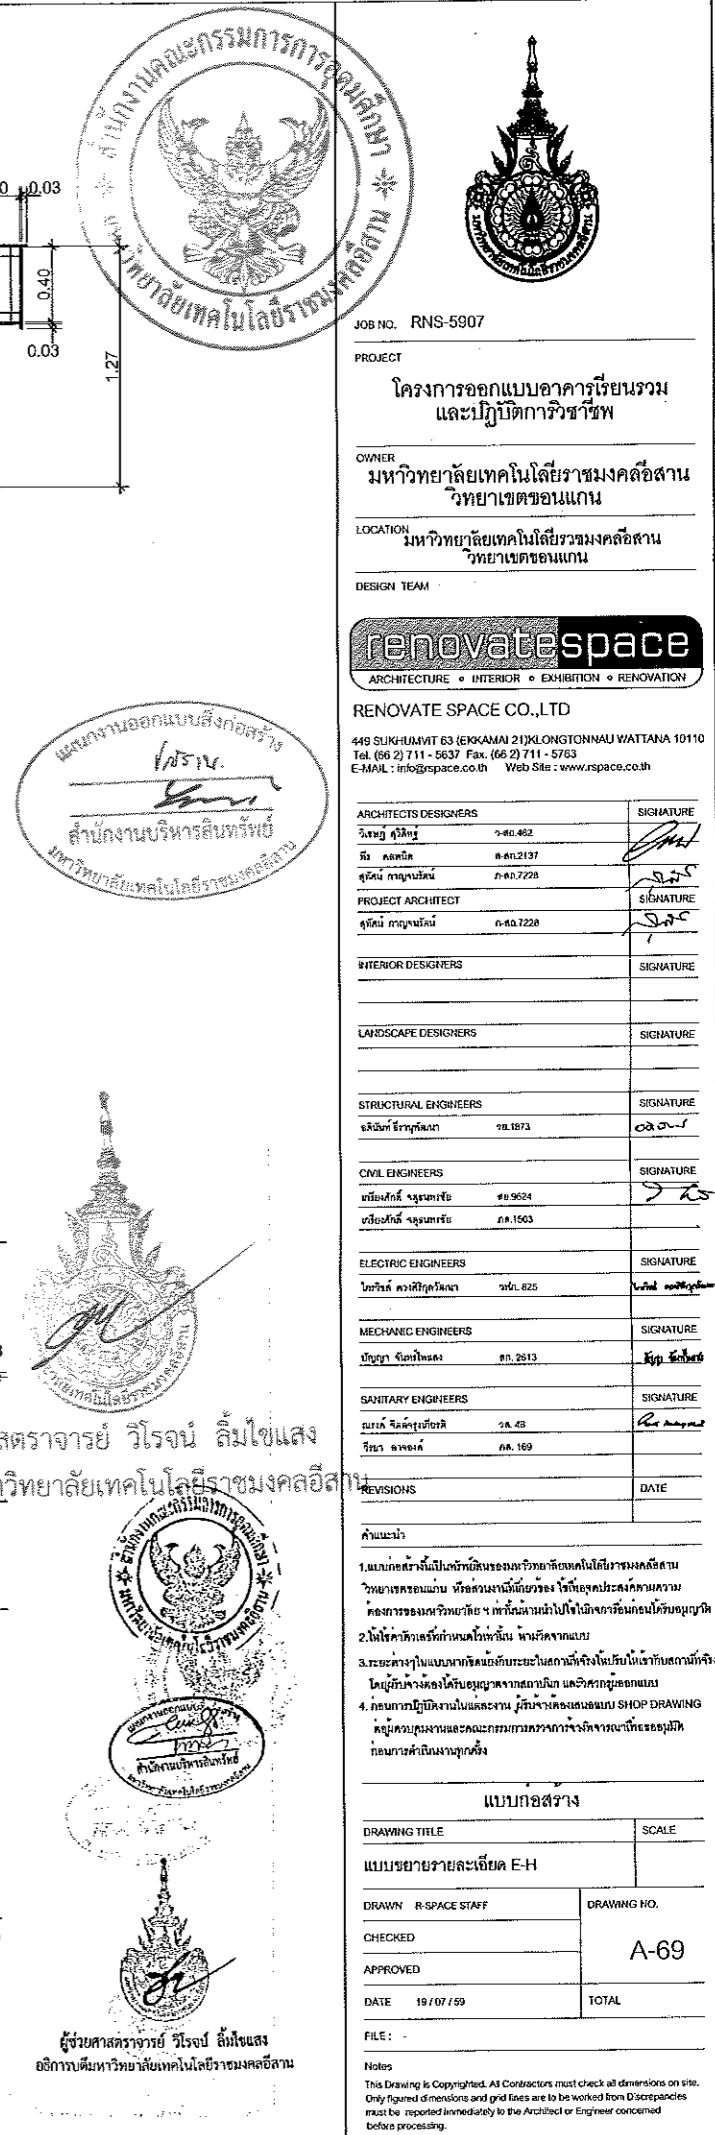 สำนักงานคณะกรรมการการอุดมศึกษา
มหาวิทยาลัยเทคโนโลยีราชมงคลอีสาน
0.03
0.40
0.03
1.27
แผนกงานออกแบบสิ่งก่อสร้าง
สำนักงานบริหารสินทรัพย์
มหาวิทยาลัยเทคโนโลยีราชมงคลอีสาน
สตราจารย์ วิโรจน์ ลิ้มไขแสง
าวิทยาลัยเทคโนโลยีราชมงคลอีสาน
สำนักงานคณะกรรมการการอุดมศึกษา
มหาวิทยาลัยเทคโนโลยีราชมงคลอีสาน
แผนกงานออกแบบสิ่งก่อสร้าง
สำนักงานบริหารสินทรัพย์
ผู้ช่วยศาสตราจารย์ วิโรจน์ ลิ้มไขแสง
อธิการบดีมหาวิทยาลัยเทคโนโลยีราชมงคลอีสาน
มหาวิทยาลัยเทคโนโลยีราชมงคลอีสาน
JOB NO. RNS-5907
PROJECT
โครงการออกแบบอาคารเรียนรวม
และปฏิบัติการวิชาชีพ
OWNER
มหาวิทยาลัยเทคโนโลยีราชมงคลอีสาน
วิทยาเขตขอนแก่น
LOCATION
มหาวิทยาลัยเทคโนโลยีราชมงคลอีสาน
วิทยาเขตขอนแก่น
DESIGN TEAM
renovatespace
ARCHITECTURE o INTERIOR o EXHIBITION o RENOVATION
RENOVATE SPACE CO.,LTD
449 SUKHUMVIT 63 (EKKAMAI 21)KLONGTONNAU WATTANA 10110
Tel. (66 2) 711 - 5637 Fax. (66 2) 711 - 5763
E-MAIL : info@rspace.co.th Web Site : www.rspace.co.th
ARCHITECTS DESIGNERS SIGNATURE
ว-สถ.462
2137
สุทัศน์ กาญจนรัตน์ ภ-สถ.7228
PROJECT ARCHITECT SIGNATURE
สุทัศน์ กาญจนรัตน์ ภ-สถ.7228
INTERIOR DESIGNERS SIGNATURE
LANDSCAPE DESIGNERS SIGNATURE
STRUCTURAL ENGINEERS SIGNATURE
วย.1873
CIVIL ENGINEERS SIGNATURE
เกรียงศักดิ์ สย.9624
เกรียงศักดิ์ ภส.1503
ELECTRIC ENGINEERS SIGNATURE
825
MECHANIC ENGINEERS SIGNATURE
บัญญา สก. 2613
SANITARY ENGINEERS SIGNATURE
ณรงค์ วส. 48
ภส. 169
REVISIONS DATE
คำแนะนำ
1.แบบก่อสร้างนี้เป็นทรัพย์สินของมหาวิทยาลัยเทคโนโลยีราชมงคลอีสาน
วิทยาเขตขอนแก่น หรือส่วนงานที่เกี่ยวข้อง ใช้เพื่อจุดประสงค์ตามความ
ต้องการของมหาวิทยาลัย ฯ เท่านั้นห้ามนำไปใช้ในกิจการอื่นก่อนได้รับอนุญาต
2.ให้ใช้ค่าตัวเลขที่กำหนดไว้เท่านั้น ห้ามวัดจากแบบ
3.ระยะต่างๆในแบบหากขัดแย้งกับระยะในสถานที่จริงให้ปรับให้เข้ากับสถานที่จริง
โดยผู้รับจ้างต้องได้รับอนุญาตจากสถาปนิก และวิศวกรผู้ออกแบบ
4. ก่อนการปฏิบัติงานในแต่ละงาน ผู้รับจ้างต้องเสนอแบบ SHOP DRAWING
ต่อผู้ควบคุมงานและคณะกรรมการตรวจการจ้างพิจารณาเพื่อขออนุมัติ
ก่อนการดำเนินงานทุกครั้ง
แบบก่อสร้าง
DRAWING TITLE SCALE
แบบขยายรายละเอียด E-H
DRAWN R-SPACE STAFF DRAWING NO.
CHECKED
A-69
APPROVED
DATE 19 / 07 / 59 TOTAL
FILE : -
Notes
This Drawing is Copyrighted. All Contractors must check all dimensions on site.
Only figured dimensions and grid lines are to be worked from Discrepancies
must be reported immediately to the Architect or Engineer concerned
before processing.